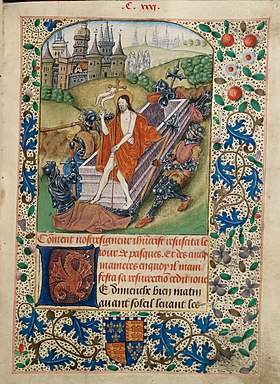 .C. xxxj.
Coment nostreseigneur ihucrist resusita le
iour de pasques. Et des cincq
manieres enquoy il mani
festa sa resurrecion cedit iour
E dimenche bien matin
auant soleil leuant les